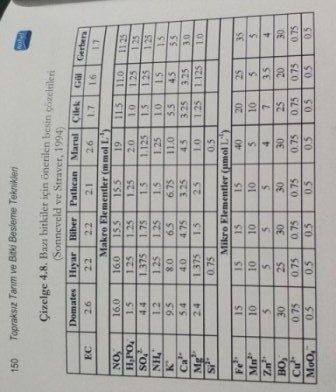 150 Topraksız Tarım ve Bitki Besleme Teknikleri
Çizelge 4.8. Bazı bitkiler için önerilen besin çözeltileri
(Sonneveld ve Straver, 1994)
Domates Hıyar Biber Patlıcan Marul Çilek Gül Gerbera
EC 2.6 2.2 2.2 2.1 2.6 1.7 1.6 1.7
Makro Elementler (mmol L⁻¹)
NO₃⁻ 16.0 16.0 15.5 15.5 19 11.5 11.0 11.25
H₂PO₄⁻ 1.5 1.25 1.25 1.25 2.0 1.0 1.25 1.25
SO₄²⁻ 4.4 1.375 1.75 1.5 1.125 1.5 1.25 1.25
NH₄⁺ 1.2 1.25 1.25 1.5 1.25 1.0 1.5 1.5
K⁺ 9.5 8.0 6.5 6.75 11.0 5.5 4.5 5.5
Ca²⁺ 5.4 4.0 4.75 3.25 4.5 3.25 3.25 3.0
Mg²⁺ 2.4 1.375 1.5 2.5 1.0 1.25 1.125 1.0
Si²⁺ 0.75 0.5
Mikro Elementler (µmol L⁻¹)
Fe²⁺ 15 15 15 15 40 20 25 35
Mn²⁺ 10 10 10 10 5 10 5 5
Zn²⁺ 5 5 5 5 4 7 3.5 4
BO₃ 30 25 30 25 30 25 20 30
Cu²⁺ 0.75 0.75 0.75 0.75 0.75 0.75 0.75 0.75
MoO₄⁻ 0.5 0.5 0.5 0.5 0.5 0.5 0.5 0.5